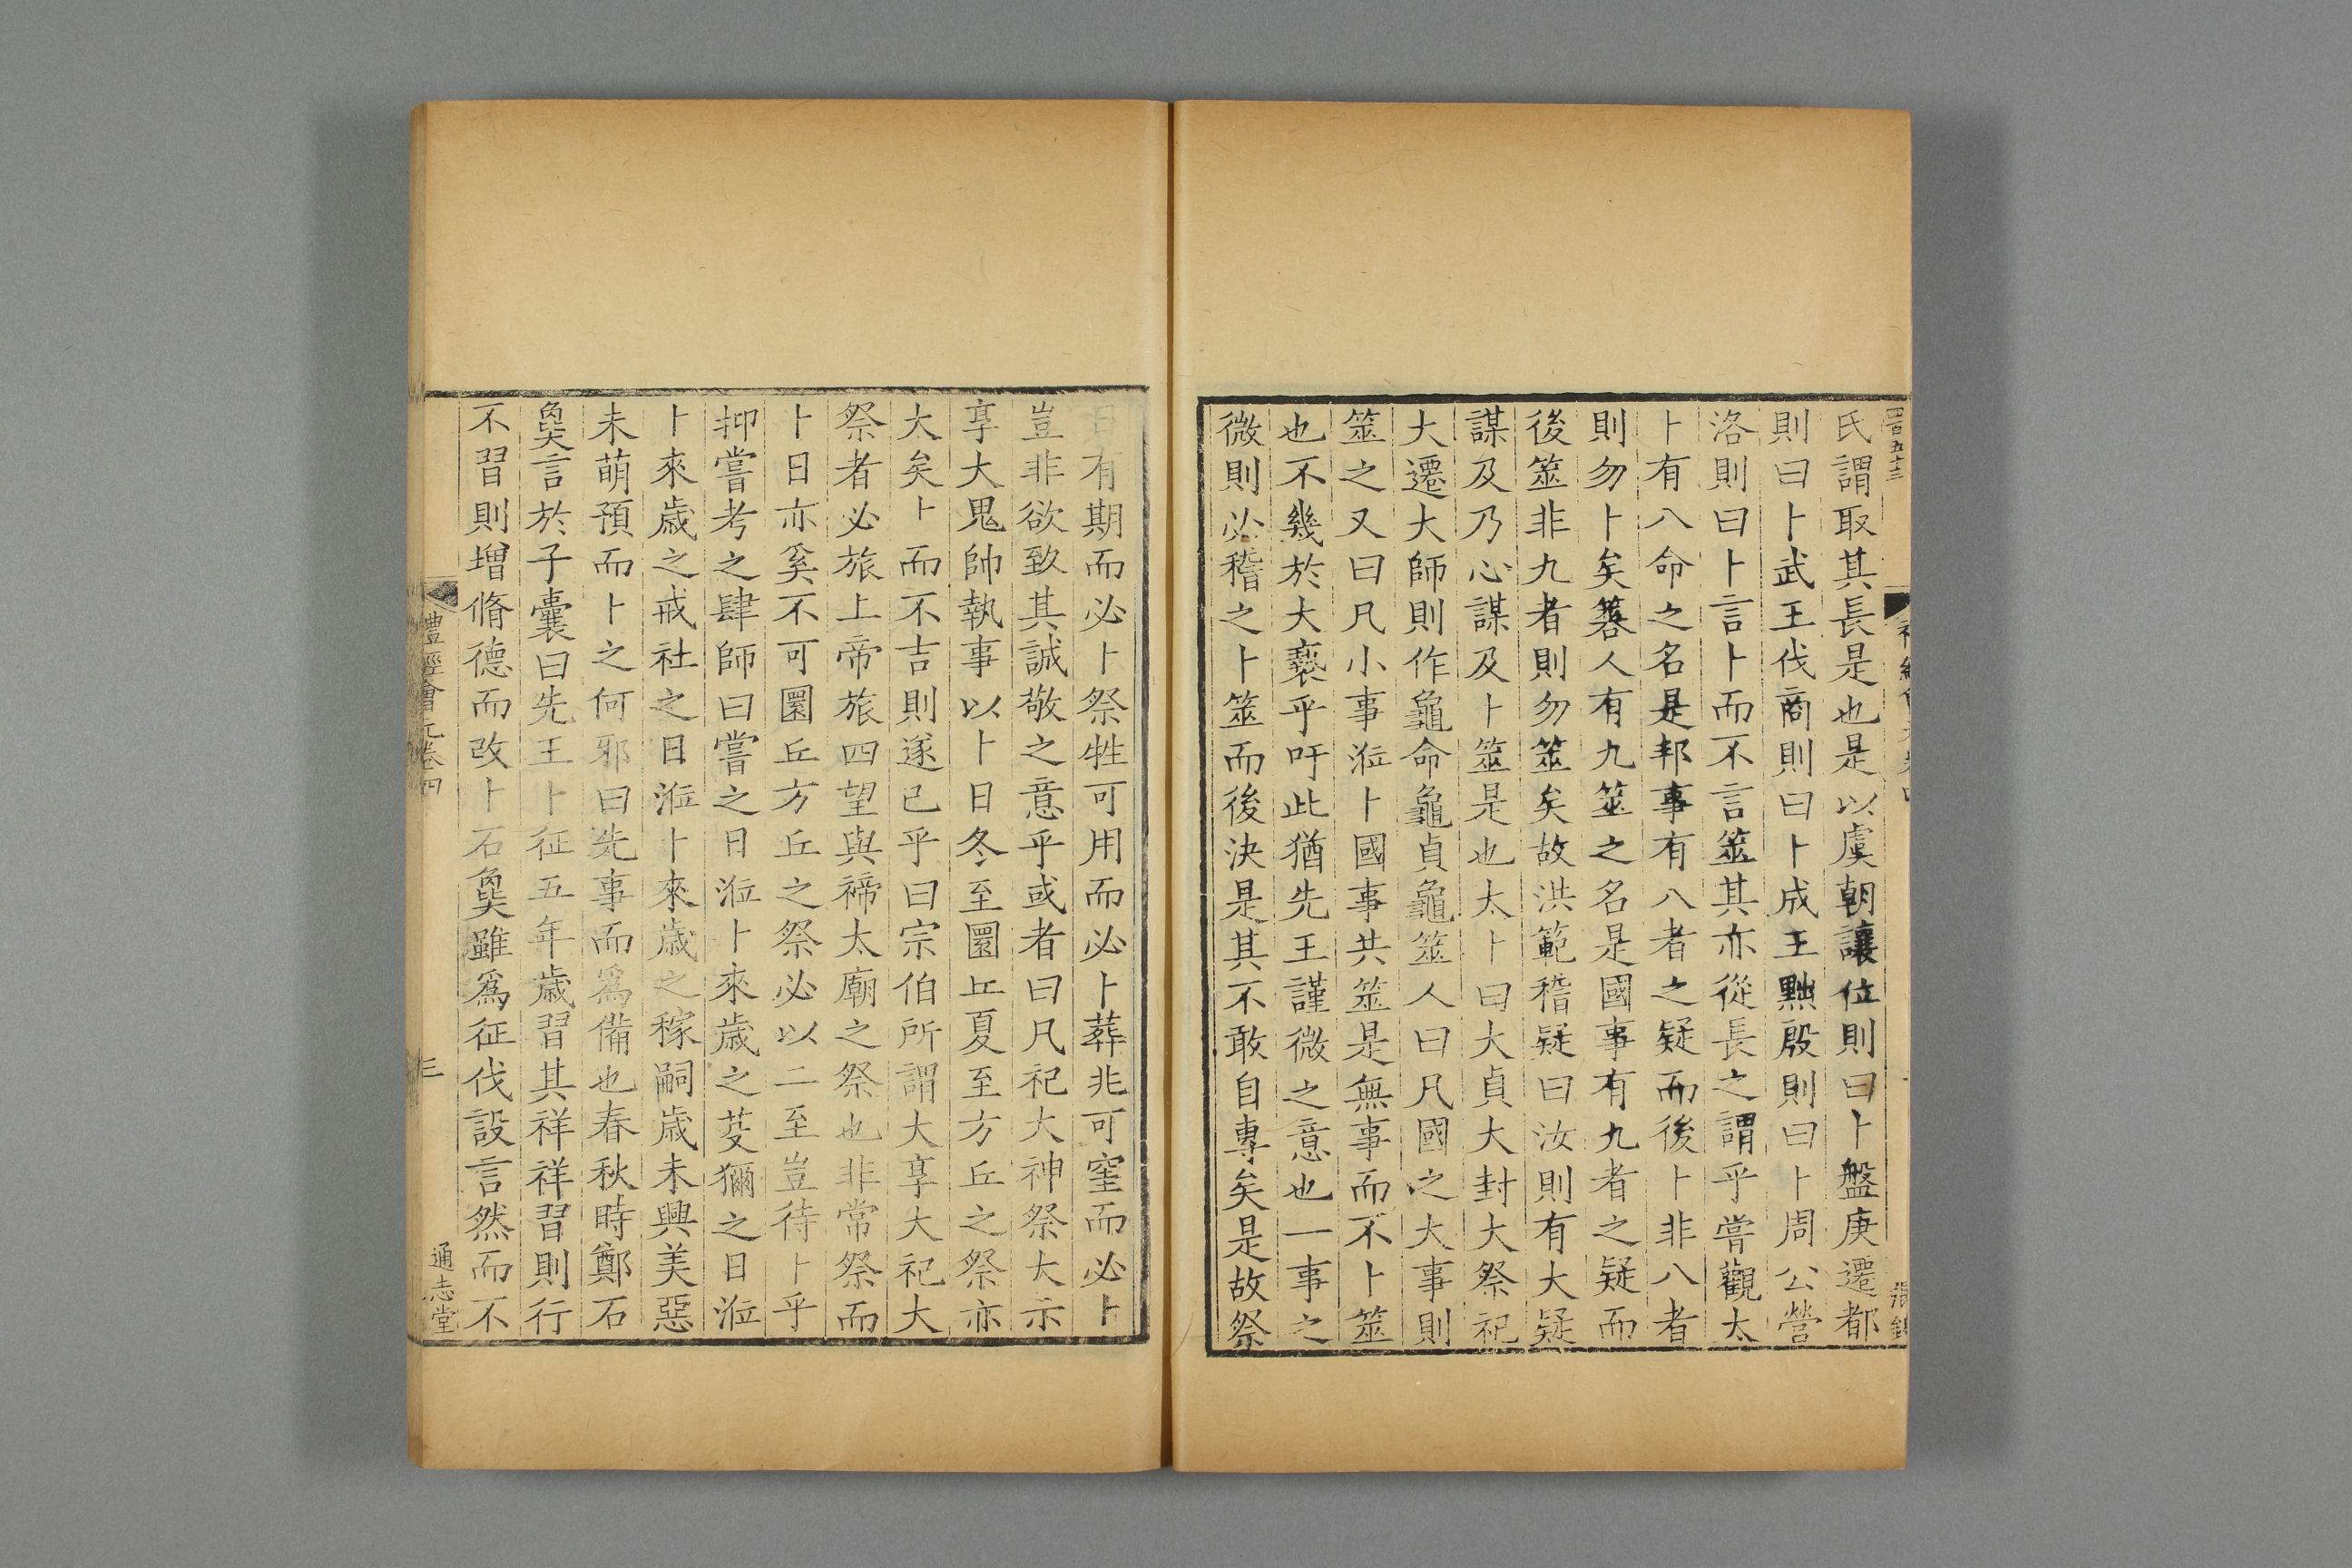 氏謂取其長是也是以虞朝讓位則曰卜盤庚遷都
則曰卜武王伐商則曰卜成王黜殷則曰卜周公營
洛則曰卜言卜而不言筮其亦從長之謂乎嘗觀太
卜有八命之名是邦事有八者之疑而後卜非八者
則勿卜矣簭人有九筮之名是國事有九者之疑而
後筮非九者則勿筮矣故洪範稽疑曰汝則有大疑
謀及乃心謀及卜筮是也太卜曰大貞大封大祭祀
大遷大師則作龜命龜貞龜筮人曰凡國之大事則
筮之又曰凡小事涖卜國事共筮是無事而不卜筮
也不幾於大褻乎吁此猶先王謹微之意也一事之
微則必稽之卜筮而後決是其不敢自專矣是故祭
日有期而必卜祭牲可用而必卜葬兆可窆而必卜
豈非欲致其誠敬之意乎或者曰凡祀大神祭大示
享大鬼帥執事以卜日冬至圜丘夏至方丘之祭亦
大矣卜而不吉則遂已乎曰宗伯所謂大享大祀大
祭者必旅上帝旅四望與禘太廟之祭也非常祭而
卜日亦奚不可圜丘方丘之祭必以二至豈待卜乎
抑嘗考之肆師曰嘗之日涖卜來歲之芟獮之日涖
卜來歲之戒社之日涖卜來歲之稼嗣歲未興美惡
未萌預而卜之何邪曰先事而爲備也春秋時鄭石
㚟言於子囊曰先王卜征五年歲習其祥祥習則行
不習則增脩德而改卜石㚟雖爲征伐設言然而不
禮經會元卷四
三
通志堂